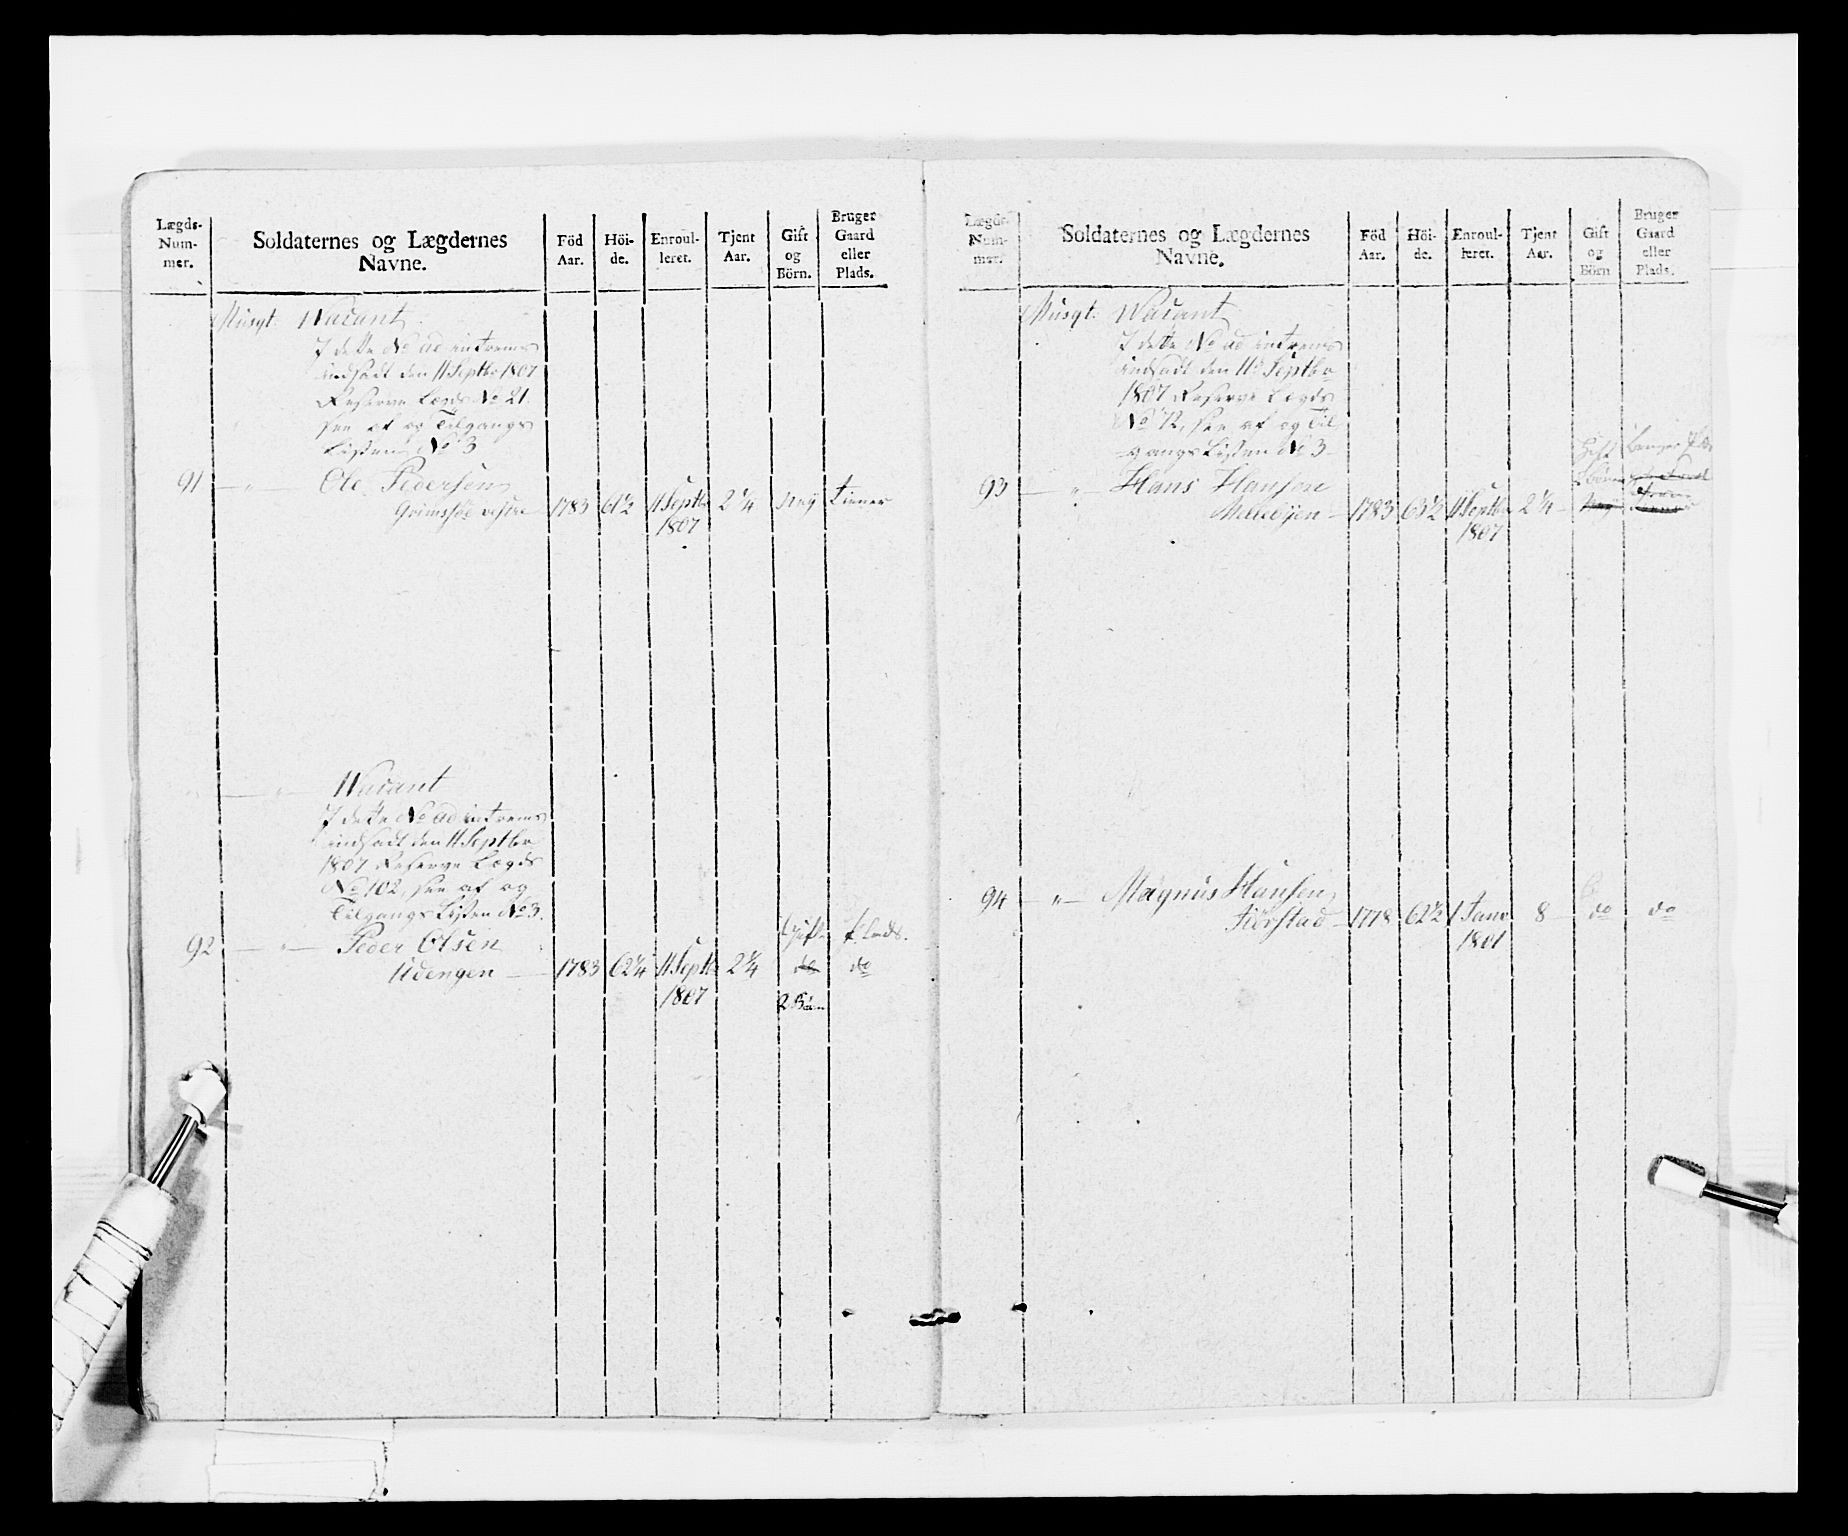 Lægds-
Num-
mer.
Soldaternes og Lægdernes
Navne.
Föd
Aar.
Höi-
de.
Enroul-
leret.
Tjent
Aar.
Gift
og
Börn.
Bruger
Gaard
eller
Plads.
Musqt: Wacant
I dette No ad interims
indsadt den 11 Septbr 1807
Reserve Lægds No 21.
see af og Tilgangs
Listen No 3
91 — " — Ole Pedersen
Grimsöe vestre 1783 61½ 11 Septbr 2¼ Nej tiener
1807
— " — Wacant
I dette No ad interims
indsadt den 11 Septbr
1807 Reserve Lægds
No 102, see af og
Tilgangs Listen No 3.
92 — " — Peder Olsen
gift Plads.
Udengen — 1783 62¼ 11 Septbr 2¼ do do
1807 2 Börn
Lægds-
Num-
mer.
Soldaternes og Lægdernes
Navne.
Föd
Aar.
Höi-
de.
Enroul-
leret.
Tjent
Aar.
Gift
og
Börn
Bruger
Gaard
eller
Plads.
Musqt: Wacant
I dette No ad interims
indsadt den 11 Septbr
1807 Reserve Lægds
No 72, see af og Til
gangs Listen No 3
Gift
93 — " — Hans Hansen
Mellebÿen — 1783 63½ 11 Septbr 2¼ — Nej tiener
1807
94 — " — Magnus Hansen
Fiörstad — 1778 62½ 1 Janv 8 — do do
1801